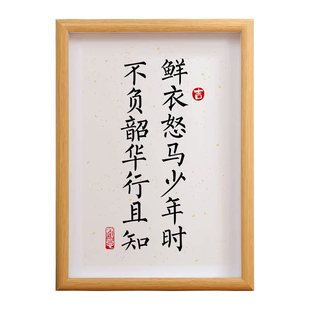 鲜衣怒马少年时
不负韶华行且知
吉